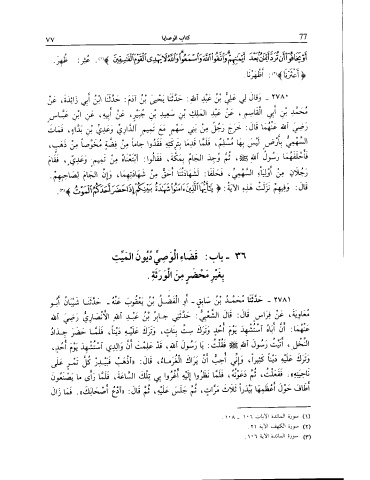 77
كتاب الوصايا
٧٧
أَوْ يَخَافُوا أَنْ تُرَدَّ أَيْمَانٌ بَعْدَ أَيْمَانِهِمْ وَاتَّقُوا اللَّهَ وَاسْمَعُوا وَاللَّهُ لَا يَهْدِي الْقَوْمَ الْفَاسِقِينَ ﴾(١). عُثِرَ: ظُهِرَ.
﴿ أَعْثَرْنَا ﴾(٢): أَظْهَرْنَا
٢٧٨٠ - وَقَالَ لِي عَلِيُّ بْنُ عَبْدِ اللهِ: حَدَّثَنَا يَحْيَىٰ بْنُ آدَمَ: حَدَّثَنَا ابْنُ أَبِي زَائِدَةَ، عَنْ
مُحَمَّدِ بْنِ أَبِي القَاسِمِ، عَنْ عَبْدِ المَلِكِ بْنِ سَعِيدِ بْنِ جُبَيْرٍ، عَنْ أَبِيهِ، عَنِ ابْنِ عَبَّاسٍ
رَضِيَ اللهُ عَنْهُمَا قَالَ: خَرَجَ رَجُلٌ مِنْ بَنِي سَهْمٍ مَعَ تَمِيمٍ الدَّارِيِّ وَعَدِيِّ بْنِ بَدَّاءٍ، فَمَاتَ
السَّهْمِيُّ بِأَرْضٍ لَيْسَ بِهَا مُسْلِمٌ، فَلَمَّا قَدِمَا بِتَرِكَتِهِ فَقَدُوا جَاماً مِنْ فِضَّةٍ مُخَوَّصاً مِنْ ذَهَبٍ،
فَأَحْلَفَهُمَا رَسُولُ اللهِ ﷺ، ثُمَّ وُجِدَ الجَامُ بِمَكَّةَ، فَقَالُوا: ابْتَعْنَاهُ مِنْ تَمِيمٍ وَعَدِيٍّ، فَقَامَ
رَجُلَانِ مِنْ أَوْلِيَاءِ السَّهْمِيِّ، فَحَلَفَا: لَشَهَادَتُنَا أَحَقُّ مِنْ شَهَادَتِهِمَا، وَإِنَّ الجَامَ لِصَاحِبِهِمْ.
قَالَ: وَفِيهِمْ نَزَلَتْ هَذِهِ الآيَةُ: ﴿ يَا أَيُّهَا الَّذِينَ آمَنُوا شَهَادَةُ بَيْنِكُمْ إِذَا حَضَرَ أَحَدَكُمُ الْمَوْتُ ﴾(٣).
٣٦ - باب: قَضَاءِ الْوَصِيِّ دُيُونَ الْمَيِّتِ
بِغَيْرِ مَحْضَرٍ مِنَ الْوَرَثَةِ.
٢٧٨١ - حَدَّثَنَا مُحَمَّدُ بْنُ سَابِقٍ - أَوِ الفَضْلُ بْنُ يَعْقُوبَ عَنْهُ - حَدَّثَنَا شَيْبَانُ أَبُو
مُعَاوِيَةَ، عَنْ فِرَاسٍ قَالَ: قَالَ الشَّعْبِيُّ: حَدَّثَنِي جَابِرُ بْنُ عَبْدِ اللهِ الأَنْصَارِيُّ رَضِيَ اللهُ
عَنْهُمَا: أَنَّ أَبَاهُ اسْتُشْهِدَ يَوْمَ أُحُدٍ وَتَرَكَ سِتَّ بَنَاتٍ، وَتَرَكَ عَلَيْهِ دَيْناً، فَلَمَّا حَضَرَ جِدَادُ
النَّخْلِ، أَتَيْتُ رَسُولَ اللهِ ﷺ فَقُلْتُ: يَا رَسُولَ اللهِ، قَدْ عَلِمْتَ أَنَّ وَالِدِي اسْتُشْهِدَ يَوْمَ أُحُدٍ،
وَتَرَكَ عَلَيْهِ دَيْناً كَثِيراً، وَإِنِّي أُحِبُّ أَنْ يَرَاكَ الغُرَمَاءُ، قَالَ: «اذْهَبْ فَبَيْدِرْ كُلَّ تَمْرٍ عَلَى
نَاحِيَتِهِ». فَفَعَلْتُ، ثُمَّ دَعَوْتُهُ، فَلَمَّا نَظَرُوا إِلَيْهِ أُغْرُوا بِي تِلْكَ السَّاعَةَ، فَلَمَّا رَأَى مَا يَصْنَعُونَ
أَطَافَ حَوْلَ أَعْظَمِهَا بَيْدَراً ثَلَاثَ مَرَّاتٍ، ثُمَّ جَلَسَ عَلَيْهِ، ثُمَّ قَالَ: «ادْعُ أَصْحَابَكَ». فَمَا زَالَ
(١) سورة المائدة الآيات ١٠٦ - ١٠٨.
(٢) سورة الكهف الآية ٢١.
(٣) سورة المائدة الآية ١٠٦.